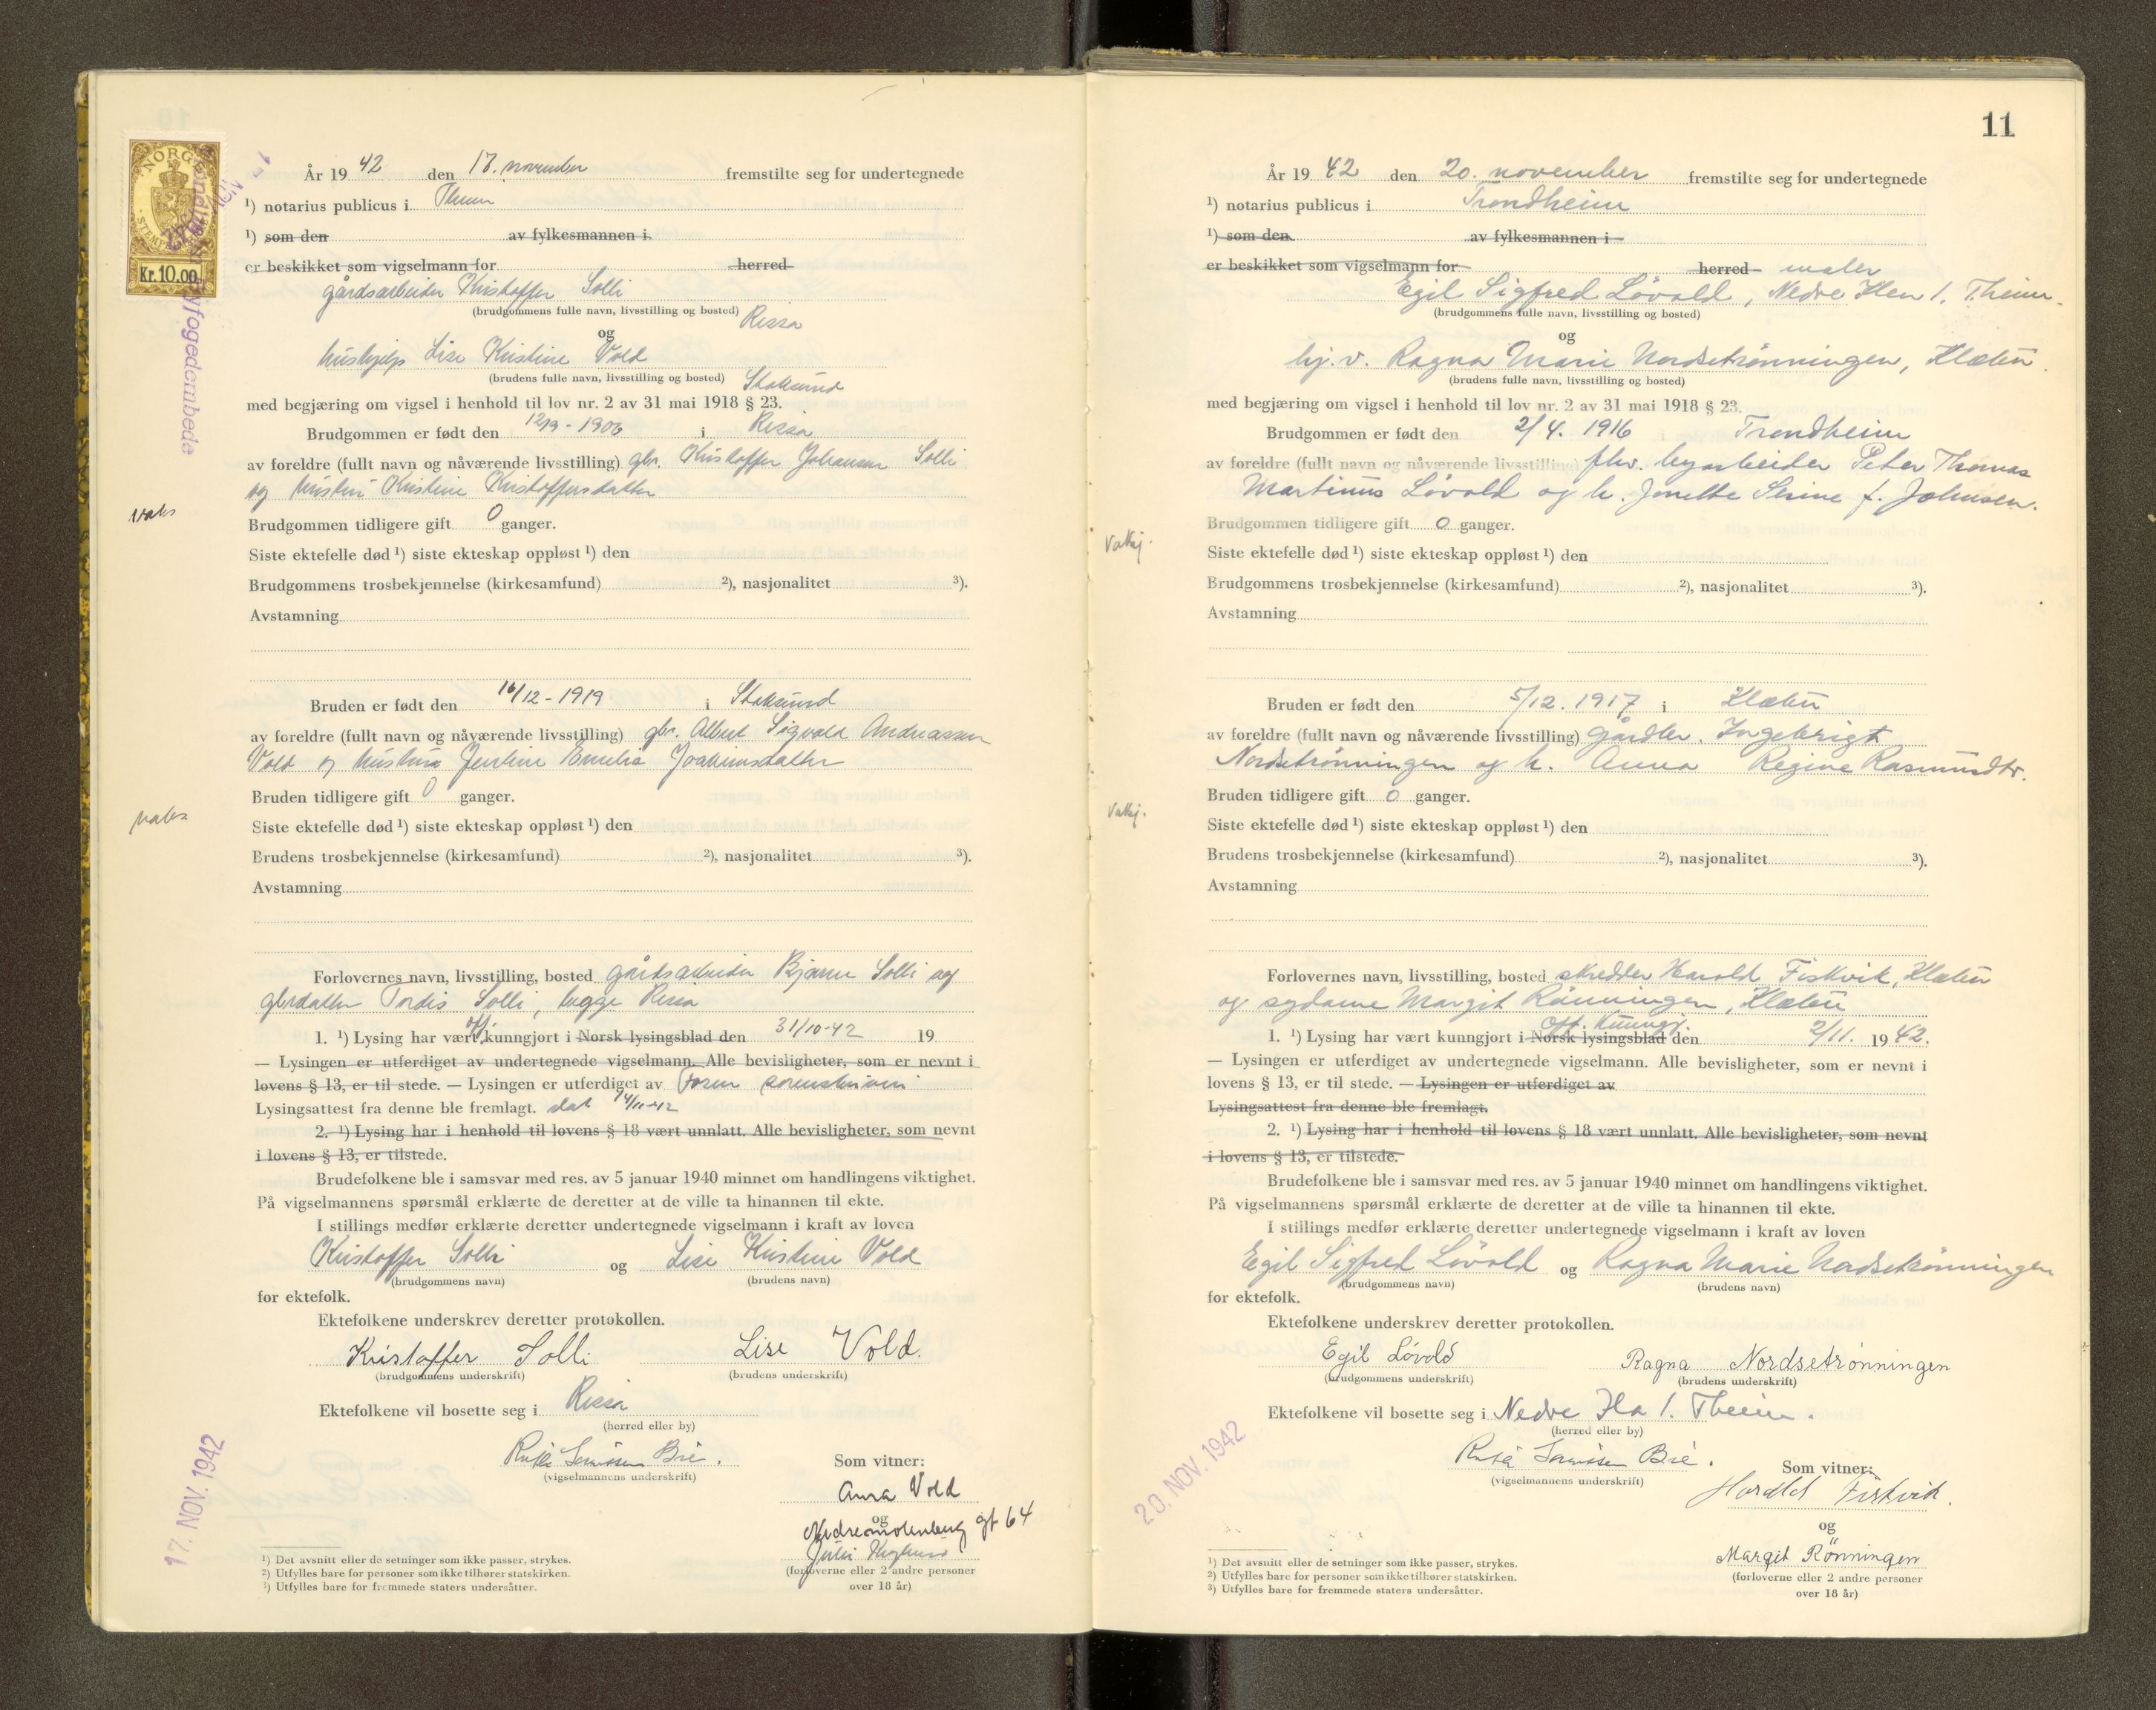 NORGE
STEMPEL
Kr. 10.00
byfogedembede
År 19 42 den 17. november fremstilte seg for undertegnede
¹) notarius publicus i Theim
¹) som den av fylkesmannen i
er beskikket som vigselmann for herred
gårdsarbeider Kristoffer Solli
(brudgommens fulle navn, livsstilling og bosted) Rissa
og
hushjelp Lise Kristine Vold
(brudens fulle navn, livsstilling og bosted) Stoksund
med begjæring om vigsel i henhold til lov nr. 2 av 31 mai 1918 § 23.
Brudgommen er født den i Rissa
av foreldre (fullt navn og nåværende livsstilling) gbr. Kristoffer Johansen Solli
og hustru Kristine Kristoffersdatter
vaks
Brudgommen tidligere gift 0 ganger.
Siste ektefelle død ¹) siste ekteskap oppløst ¹) den
Brudgommens trosbekjennelse (kirkesamfund) ²), nasjonalitet ³).
Avstamning
Bruden er født den 16/12 - 1919 i Stoksund
av foreldre (fullt navn og nåværende livsstilling) gbr. Albert Sigvald Andreassen
Vold og hustru Jentine Emelia Joakimsdatter
Bruden tidligere gift 0 ganger.
vaks
Siste ektefelle død ¹) siste ekteskap oppløst ¹) den
Brudens trosbekjennelse (kirkesamfund) ²), nasjonalitet ³).
Avstamning
Forlovernes navn, livsstilling, bosted gårdsarbeider Bjarne Solli og
gbrdatter Tordis Solli, begge Rissa
1. ¹) Lysing har vært off. kunngjort i Norsk lysingsblad den 31/10-42 19
— Lysingen er utferdiget av undertegnede vigselmann. Alle bevisligheter, som er nevnt i
lovens § 13, er til stede. — Lysingen er utferdiget av Fosen sorenskriveri
Lysingsattest fra denne ble fremlagt. dat 14/11-42
2. ¹) Lysing har i henhold til lovens § 18 vært unnlatt. Alle bevisligheter, som nevnt
i lovens § 13, er tilstede.
Brudefolkene ble i samsvar med res. av 5 januar 1940 minnet om handlingens viktighet.
På vigselmannens spørsmål erklærte de deretter at de ville ta hinannen til ekte.
I stillings medfør erklærte deretter undertegnede vigselmann i kraft av loven
Kristoffer Solli og Lise Kristine Vold
(brudgommens navn) (brudens navn)
for ektefolk.
Ektefolkene underskrev deretter protokollen.
Kristoffer Solli Lise Vold.
(brudgommens underskrift) (brudens underskrift)
Ektefolkene vil bosette seg i Rissa
(herred eller by)
17. NOV. 1942
(vigselmannens underskrift)
Som vitner:
Anna Vold
og
Nedremolenberg gt 64
(forloverne eller 2 andre personer
over 18 år)
¹) Det avsnitt eller de setninger som ikke passer, strykes.
²) Utfylles bare for personer som ikke tilhører statskirken.
³) Utfylles bare for fremmede staters undersåtter.
11
År 19 42 den 20. november fremstilte seg for undertegnede
¹) notarius publicus i Trondheim
¹) som den av fylkesmannen i
er beskikket som vigselmann for herred maler
Egil Sigfred Lövold, Nedre Ilen 1. Theim.
(brudgommens fulle navn, livsstilling og bosted)
og
hj.v. Ragna Marie Nordsetrönningen, Klæbu.
(brudens fulle navn, livsstilling og bosted)
med begjæring om vigsel i henhold til lov nr. 2 av 31 mai 1918 § 23.
Brudgommen er født den 2/4. 1916 i Trondheim
av foreldre (fullt navn og nåværende livsstilling) fhv. byarbeider Peter Thomas
Martinus Lövold og h. Jonette Serine f. Johnsen.
Brudgommen tidligere gift 0 ganger.
Vaksj.
Siste ektefelle død ¹) siste ekteskap oppløst ¹) den
Brudgommens trosbekjennelse (kirkesamfund) ²), nasjonalitet ³).
Avstamning
Bruden er født den 5/12. 1917 i Klæbu
av foreldre (fullt navn og nåværende livsstilling) gårdbr. Ingebrigt
Nordsetrönningen og h. Anna Regine Rasmusdtr.
Bruden tidligere gift 0 ganger.
Vaksj.
Siste ektefelle død ¹) siste ekteskap oppløst ¹) den
Brudens trosbekjennelse (kirkesamfund) ²), nasjonalitet ³).
Avstamning
Forlovernes navn, livsstilling, bosted skredder Harald Fiskvik, Klæbu
og sydame Margit Rönningen, Klæbu
1. ¹) Lysing har vært kunngjort i Norsk lysingsblad off. kunngj. den 2/11. 1942.
— Lysingen er utferdiget av undertegnede vigselmann. Alle bevisligheter, som er nevnt i
lovens § 13, er til stede. — Lysingen er utferdiget av
Lysingsattest fra denne ble fremlagt.
2. ¹) Lysing har i henhold til lovens § 18 vært unnlatt. Alle bevisligheter, som nevnt
i lovens § 13, er tilstede.
Brudefolkene ble i samsvar med res. av 5 januar 1940 minnet om handlingens viktighet.
På vigselmannens spørsmål erklærte de deretter at de ville ta hinannen til ekte.
I stillings medfør erklærte deretter undertegnede vigselmann i kraft av loven
Egil Sigfred Lövold og Ragna Marie Nordsetrönningen
(brudgommens navn) (brudens navn)
for ektefolk.
Ektefolkene underskrev deretter protokollen.
Egil Lövold Ragna Nordsetrønningen
(brudgommens underskrift) (brudens underskrift)
Ektefolkene vil bosette seg i Nedre Ila 1. Theim.
(herred eller by)
20. NOV. 1942
(vigselmannens underskrift)
Som vitner:
Harald Fiskvik.
og
Margit Rönningen
(forloverne eller 2 andre personer
over 18 år)
¹) Det avsnitt eller de setninger som ikke passer, strykes.
²) Utfylles bare for personer som ikke tilhører statskirken.
³) Utfylles bare for fremmede staters undersåtter.